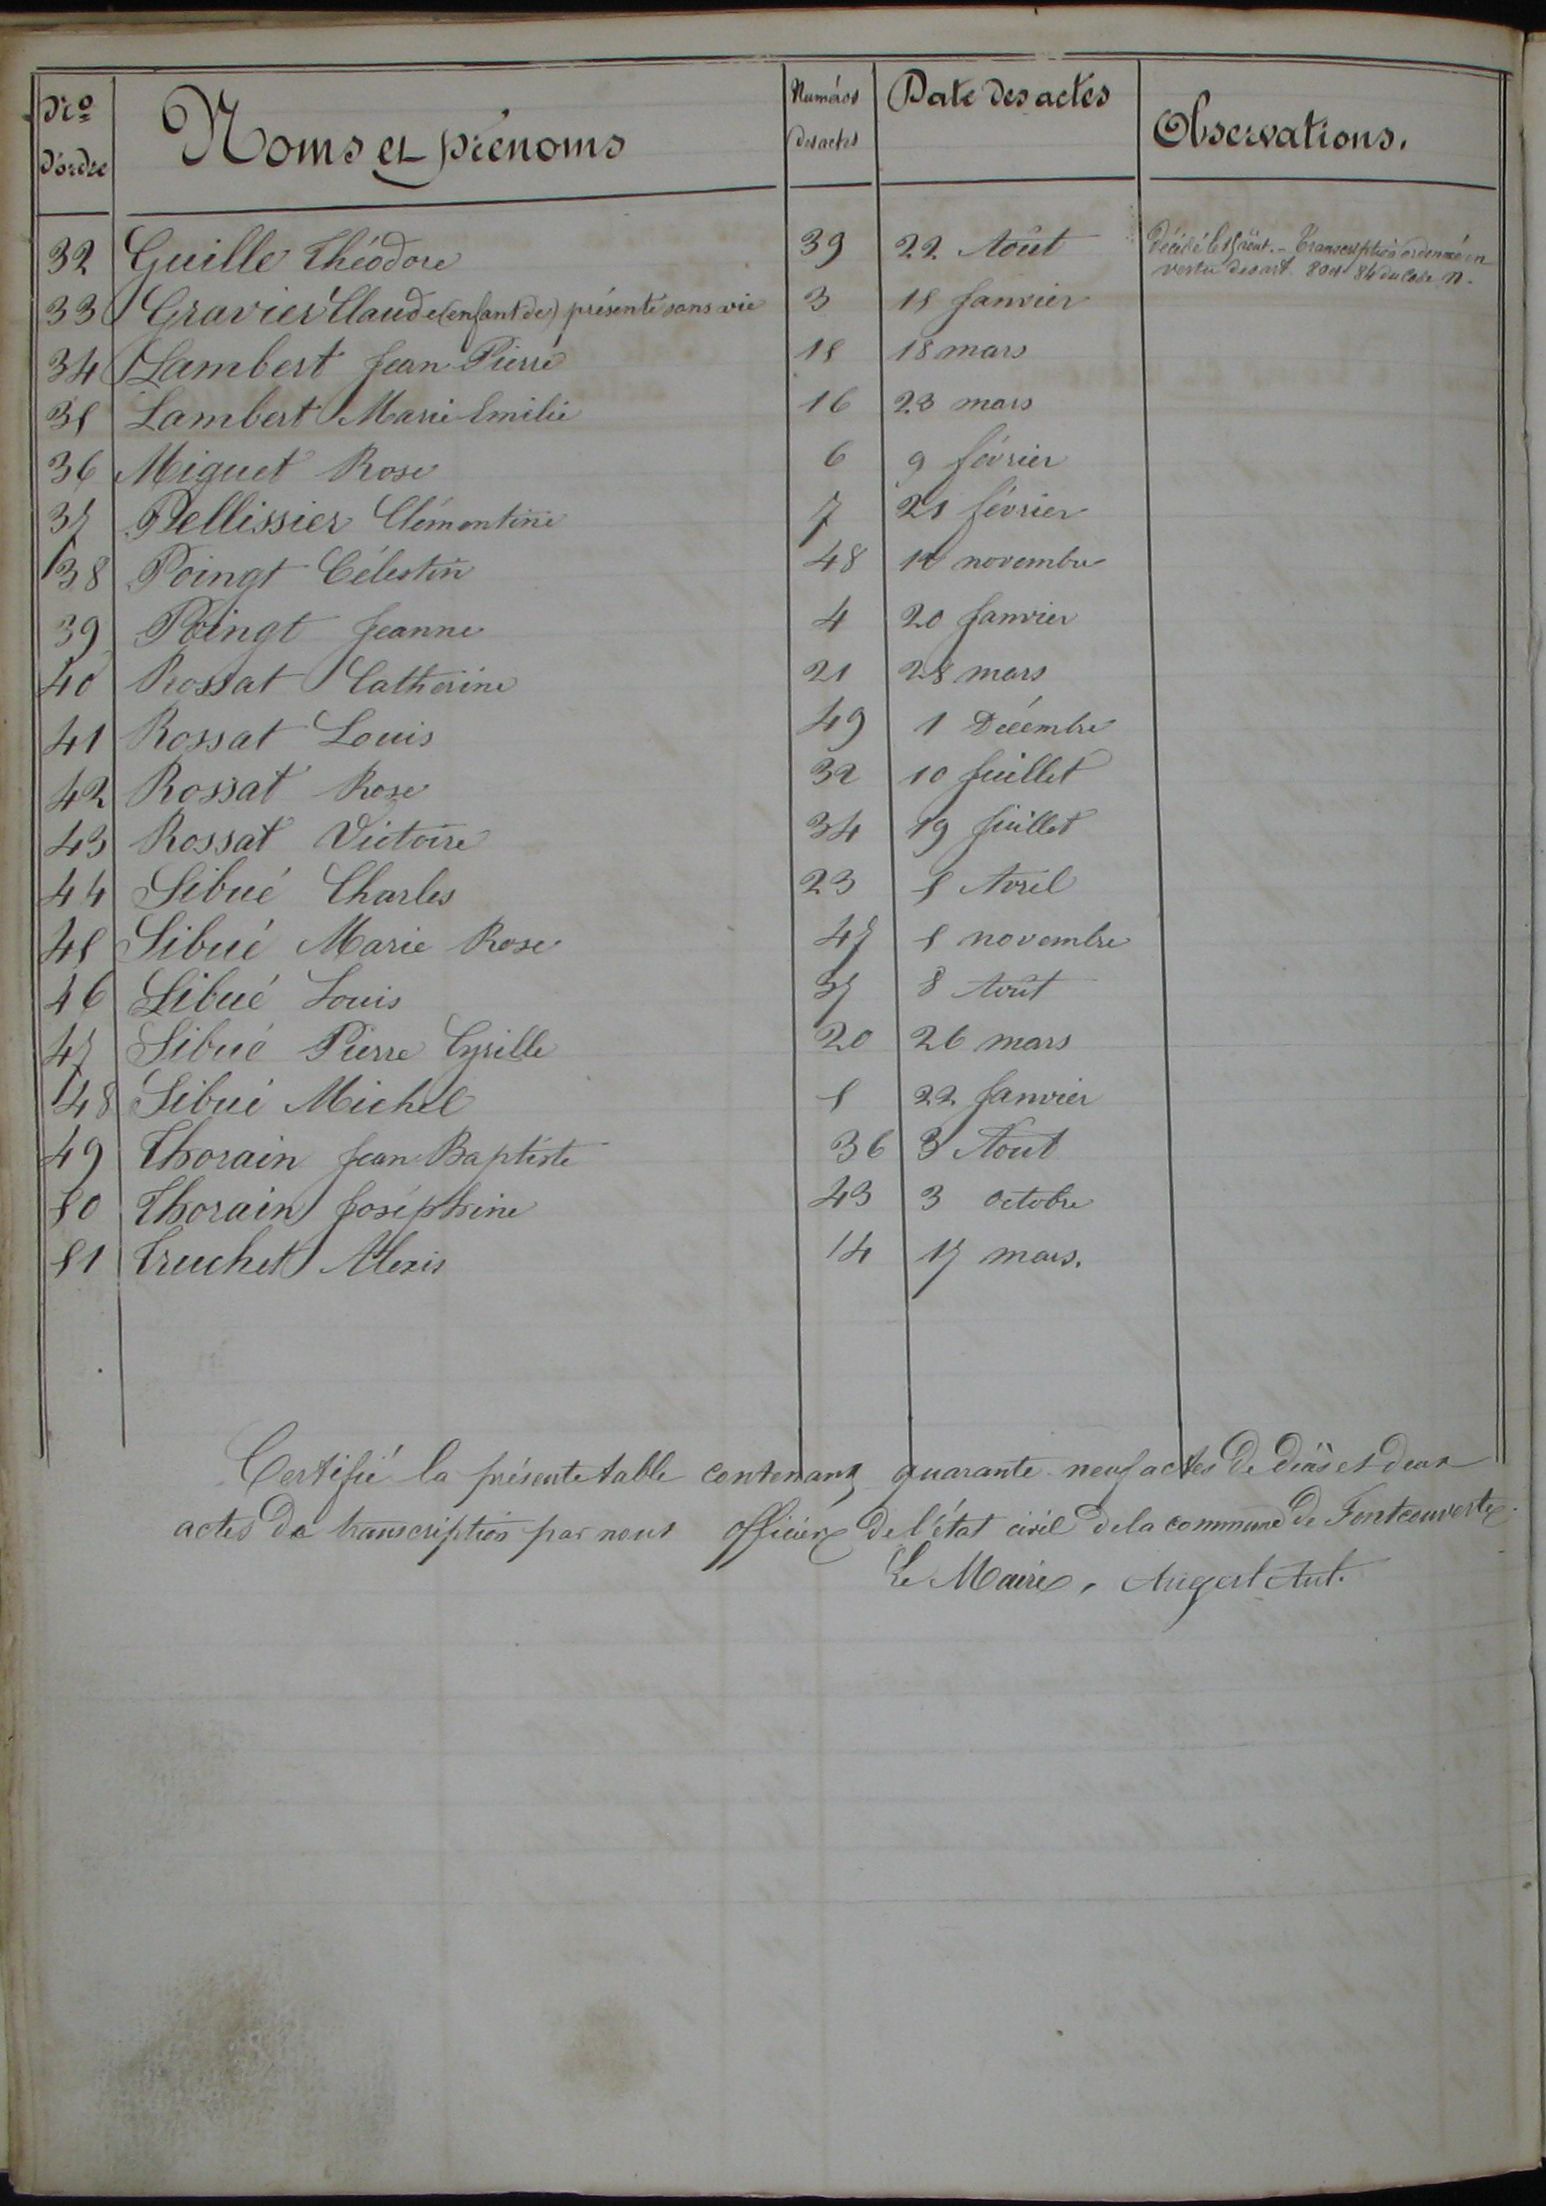 Nº d'ordre | Noms et prénoms | Numéros des actes | Date des actes | Observations.
32 Guille Théodore 39 22 Août Décédé le Août. - Transcription ordonnée en
vertu des art. 80 et 84 du Code N.
33 Gravier Claude (enfant de) présenté sans vie 3 15 Janvier
34 Lambert Jean Pierre 15 18 mars
35 Lambert Marie Emilie 16 23 mars
36 Miguet Rose 6 9 février
37 Pellissier Clémentine 7 21 février
38 Poingt Célestin 48 novembre
39 Poingt Jeanne 4 20 Janvier
40 Rossat Catherine 21 28 mars
41 Rossat Louis 49 1 Décembre
42 Rossat Rose 32 10 Juillet
43 Rossat Victoire 34 19 Juillet
44 Sibué Charles 23 5 Avril
45 Sibué Marie Rose 47 5 novembre
46 Sibué Louis 37 8 Août
47 Sibué Pierre Cyrille 20 26 mars
48 Sibué Michel 5 22 Janvier
49 Thorain Jean Baptiste 36 3 Aout
50 Thorain Joséphine 43 3 Octobre
51 Truchet Alexis 14 17 mars.
Certifié la présente table contenant quarante neuf actes de décès et deux
actes de transcription par nous officier de l'état civil de la commune de Fontcouverte.
Le Maire, Augert Ant.